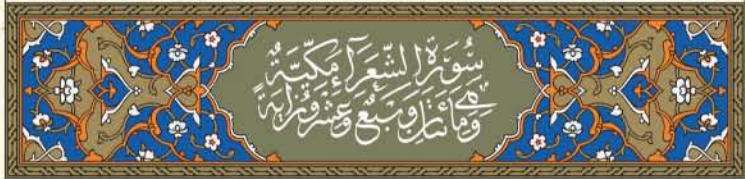 سُورَةُ الشُّعَرَاءِ مَكِّيَّةٌ
وَهِيَ مِائَتَانِ وَسَبْعٌ وَعِشْرُونَ آيَةً